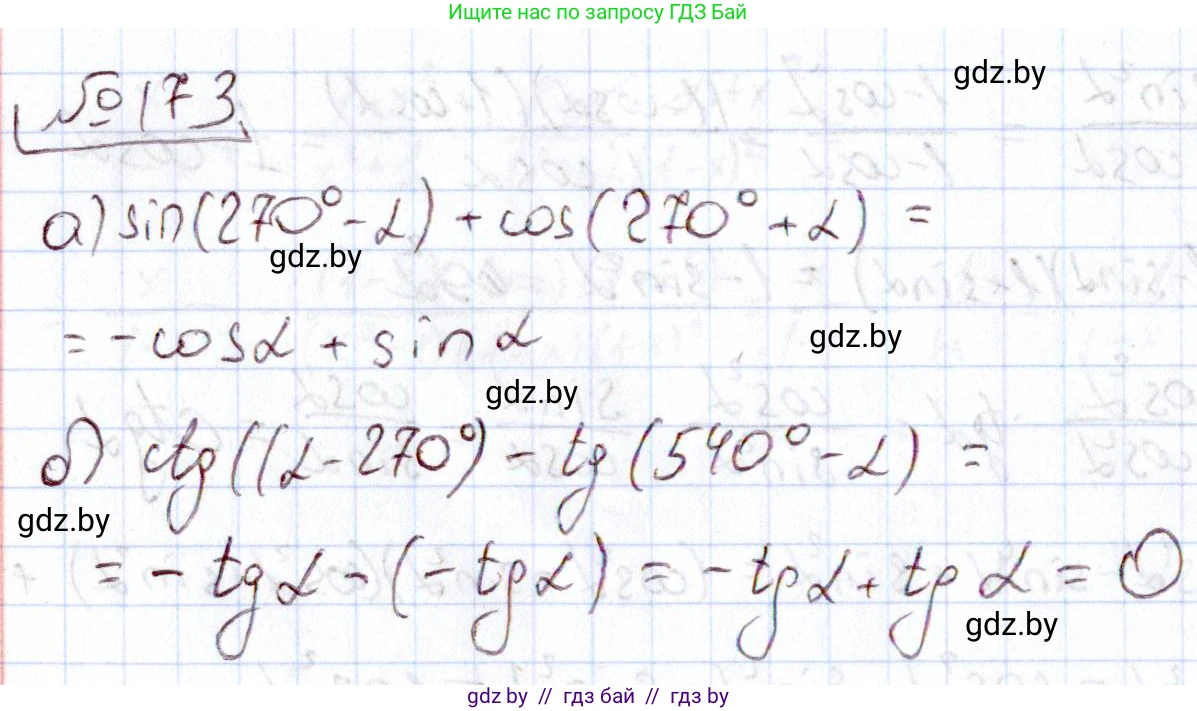 Ищите нас по запросу ГДЗ Бай
gdz.by
№ 173
а) sin(270° - α) + cos(270° + α) =
gdz.by
= - cos α + sin α
gdz.by
gdz.by
б) ctg((α - 270°) - tg(540° - α) =
gdz.by
= - tg α - (- tg α) = - tg α + tg α = 0
gdz.by
gdz.by // гдз бай // гдз by